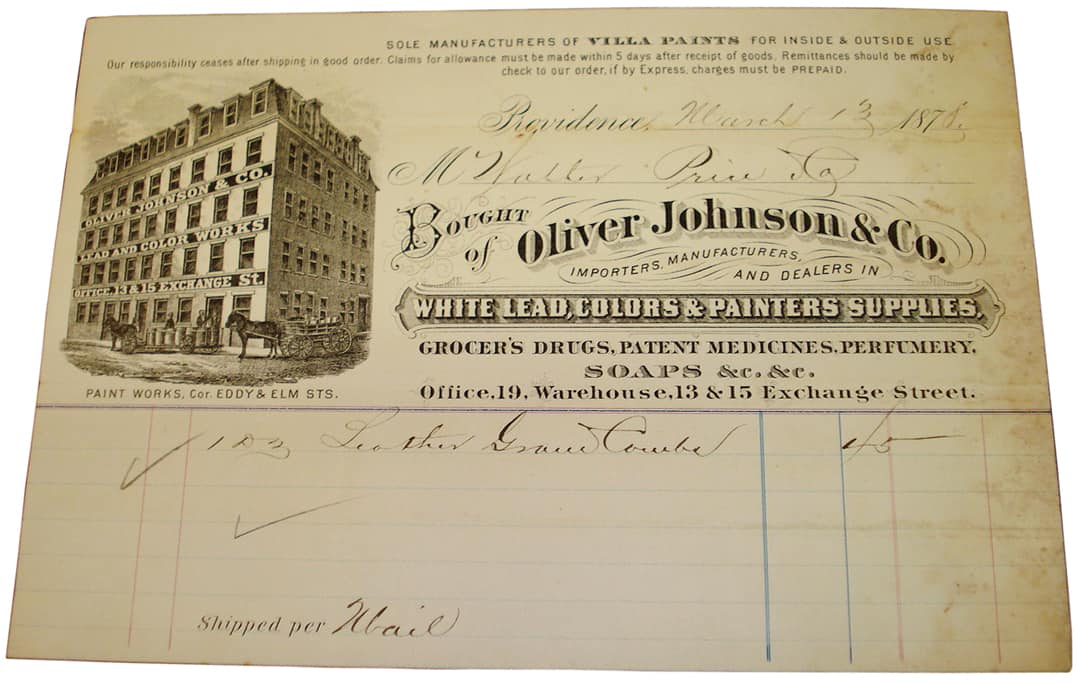 SOLE MANUFACTURERS OF VILLA PAINTS FOR INSIDE & OUTSIDE USE
Our responsibility ceases after shipping in good order. Claims for allowance must be made within 5 days after receipt of goods, Remittances should be made by
check to our order, if by Express, charges must be PREPAID.
Providence, March 13 1878.
M Walter Price Co
Bought of Oliver Johnson & Co.
IMPORTERS, MANUFACTURERS,
AND DEALERS IN
WHITE LEAD, COLORS & PAINTERS SUPPLIES,
GROCER'S DRUGS, PATENT MEDICINES, PERFUMERY,
SOAPS &c. &c.
Office, 19, Warehouse, 13 & 15 Exchange Street.
OLIVER JOHNSON & CO.
LEAD AND COLOR WORKS
OFFICE, 13 & 15 EXCHANGE St.
PAINT WORKS, Cor. EDDY & ELM STS.
Leather Combs 45
Shipped per Mail